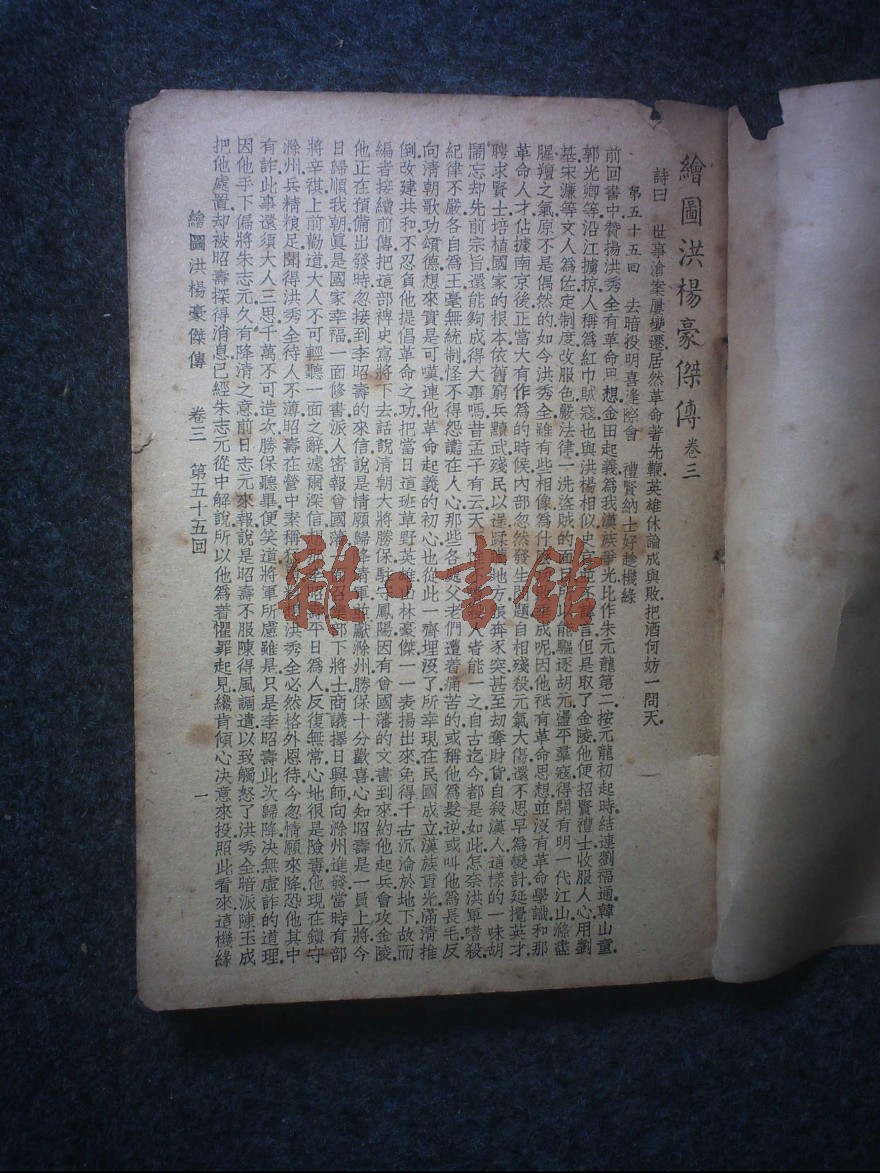 繪圖洪楊豪傑傳 卷三
詩曰 世事滄桑屢變遷居然革命著先鞭英雄休論成與敗把酒何妨一問天
第五十五回 去暗投明喜逢際會 禮賢納士好趁機緣
前回書中贊揚洪秀全有革命思想金田起義爲我漢族爭光比作朱元龍第二按元龍初起時結連劉福通韓山童
郭光卿等沿江擄掠人稱爲紅巾賊寇也與洪楊相似史官並不諱言但是取了金陵他便招賢禮士收服人心用劉
基宋濂等文人爲佐定制度改服色嚴法律一洗盜賊的面目所以能驅逐胡元盪平羣寇得開有明一代江山滌盡
腥羶之氣原不是偶然的如今洪秀全雖有些相像爲什成呢因他祇有革命思想並沒有革命學識和那
革命人才佔據南京後正當大有作爲的時候內部忽然發生問題自相殘殺元氣大傷還不思早爲變計延攬英才
聘求賢士培植國家的根本依舊窮兵黷武殘民以逞蹂地方狼奔豕突甚至刧奪財貨自殺漢人這樣的一味胡
鬧忘却先前宗旨還能夠成得大事嗎昔孟子有云天人者能一之自古迄今都是如此怎奈洪軍嗜殺
紀律不嚴各自爲王毫無統制怪不得怨讟在人心那些各處父老們遭着痛苦的或稱他爲髮逆或叫他爲長毛反
向清朝歌功頌德想來實是可嘆連他革命起義的初心也從此一齊埋沒了所幸現在民國成立漢族重光滿清推
倒改建共和不忍負他提倡革命之功把當日這班草野英雄林豪傑一一表揚出來免得千古沉淪於地下故而
編者接續前傳把這部稗史寫將下去話說清朝大將勝保駐守鳳陽因有曾國藩的文書到來約他起兵會攻金陵
他正在預備出發時忽接到李昭壽的來信說是情願歸降清軍並獻滁州勝保十分歡喜心知昭壽是一員上將今
日歸順我朝眞是國家幸福一面修書派人密報曾國藩一召集部下將士商議擇日興師向滁州進發當時有部
將辛祺上前勸道大人不可輕聽一面之辭遽爾深信壽平日爲人反復無常心地很是險毒他現在鎭守
滁州兵精粮足聞得洪秀全待人不薄昭壽在營中素稱洪秀全必然格外恩待今忽情願來降恐他其中
有詐此事還須大人三思千萬不可造次勝保聽畢便笑道將軍所慮雖是只是李昭壽此次歸降决無虛詐的道理
因他手下偏將朱志元久有降清之意前日志元來報說是昭壽不服陳得風調遣以致觸怒了洪秀全暗派陳玉成
把他處置却被昭壽探得消息已經朱志元從中解說所以他爲着懼罪起見纔肯傾心决意來投照此看來這機緣
繪圖洪楊豪傑傳 卷三 第五十五回 一
雜·書館